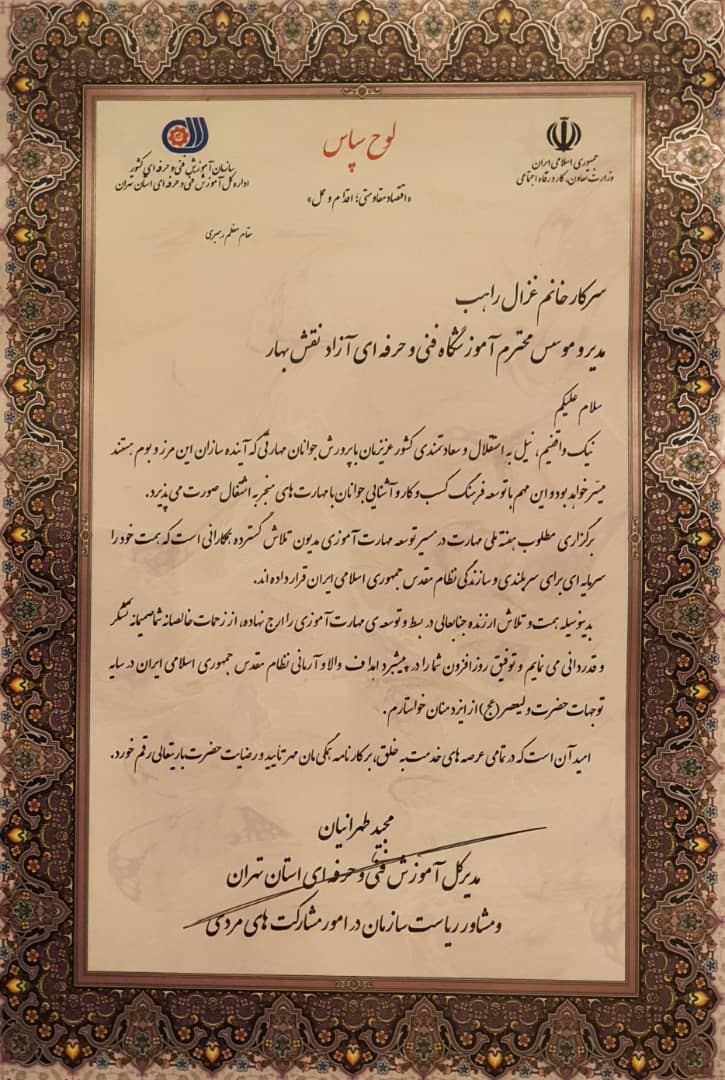 لوح سپاس
جمهوری اسلامی ایران
وزارت تعاون، کار و رفاه اجتماعی
سازمان آموزش فنی و حرفه ای کشور
اداره کل آموزش فنی و حرفه ای استان تهران
«اقتصاد مقاومتی؛ اقدام و عمل»
مقام معظم رهبری
سرکار خانم غزال راهب
مدیر و موسس محترم آموزشگاه فنی و حرفه ای آزاد نقش بهار
سلام علیکم
نیک واقفیم، نیل به استقلال و سعادتمندی کشور عزیزمان با پرورش جوانان مهارتی که آینده سازان این مرز و بوم هستند
میسّر خواهد بود و این مهم با توسعه فرهنگ کسب و کار و آشنایی جوانان با مهارت های منجر به اشتغال صورت می پذیرد.
برگزاری مطلوب هفته ملی مهارت در مسیر توسعه مهارت آموزی مدیون تلاش گسترده همکارانی است که همت خود را
سرمایه ای برای سربلندی و سازندگی نظام مقدس جمهوری اسلامی ایران قرار داده اند.
بدینوسیله همت و تلاش ارزنده جنابعالی در بسط و توسعه ی مهارت آموزی را ارج نهاده، از زحمات خالصانه شما صمیمانه تشکر
و قدردانی می نمایم و توفیق روز افزون شما را در پیشبرد اهداف والا و آرمانی نظام مقدس جمهوری اسلامی ایران در سایه
توجهات حضرت ولیعصر (عج) از ایزد منان خواستارم.
امید آن است که در تمامی عرصه های خدمت به خلق، بر کارنامه همگی مان مهر تأیید و رضایت حضرت باریتعالی رقم خورد.
مجید طهرانیان
مدیرکل آموزش فنی و حرفه ای استان تهران
و مشاور ریاست سازمان در امور مشارکت های مردمی